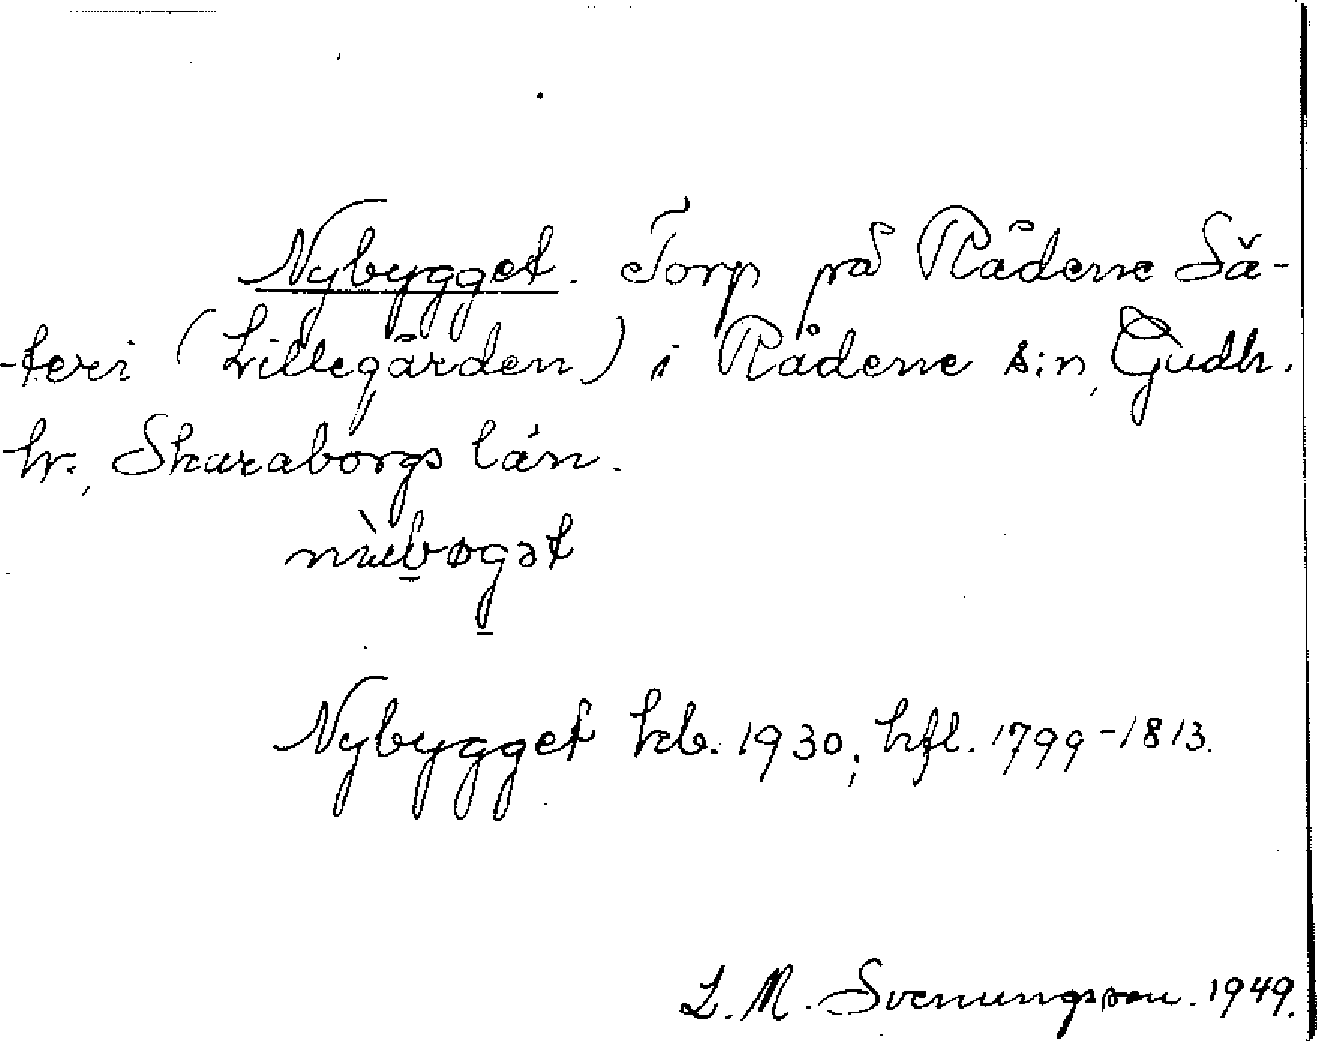 Nybygget. Torp på Rådene Sä-
teri (Lillegården) i Rådene s:n, Gudh.
hr., Skaraborgs län.
Nybygget kb. 1930, hfl. 1799-1813.
L. M. Svenungsson. 1949.